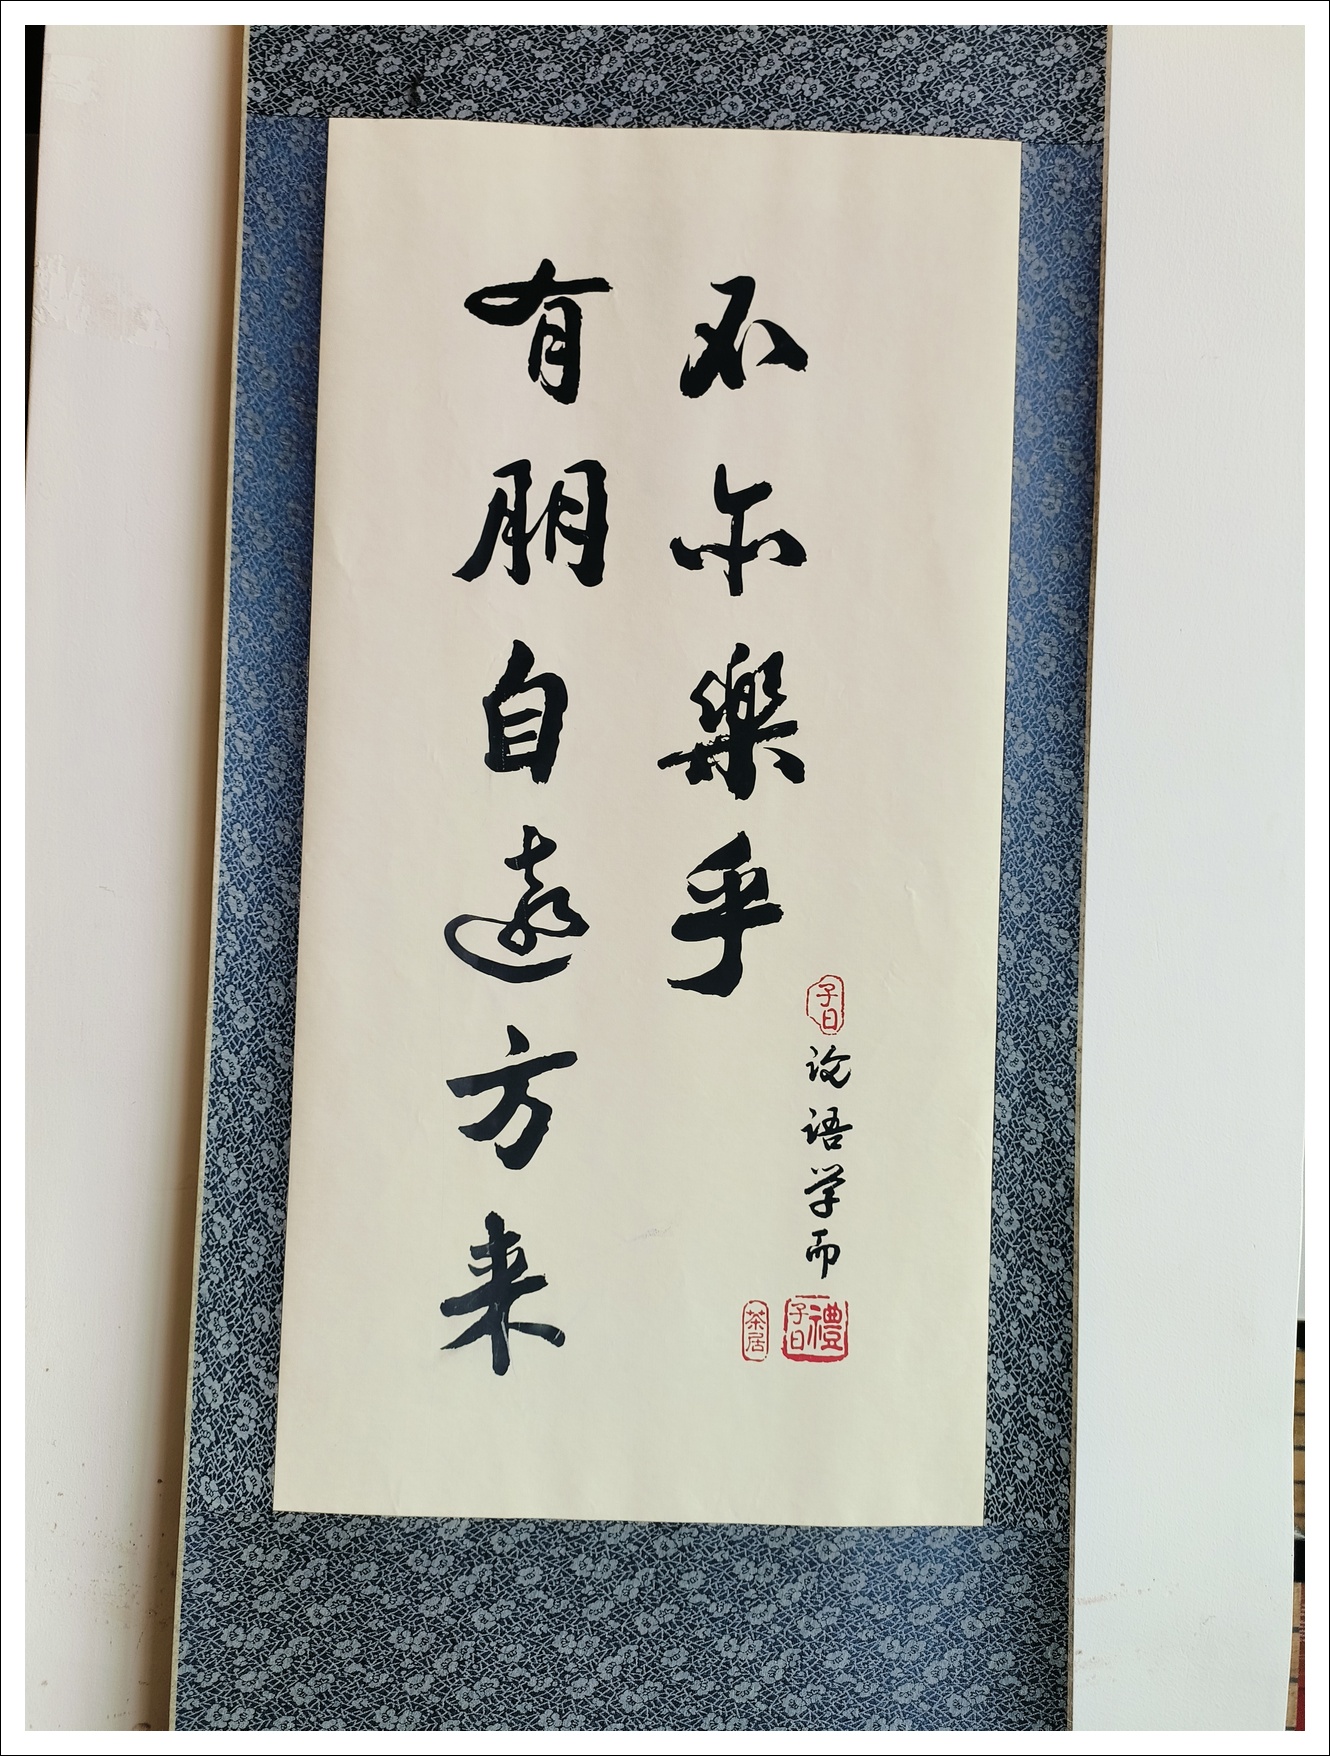 有朋自遠方来
不亦樂乎
子曰
论语学而
禮
子曰
茶居